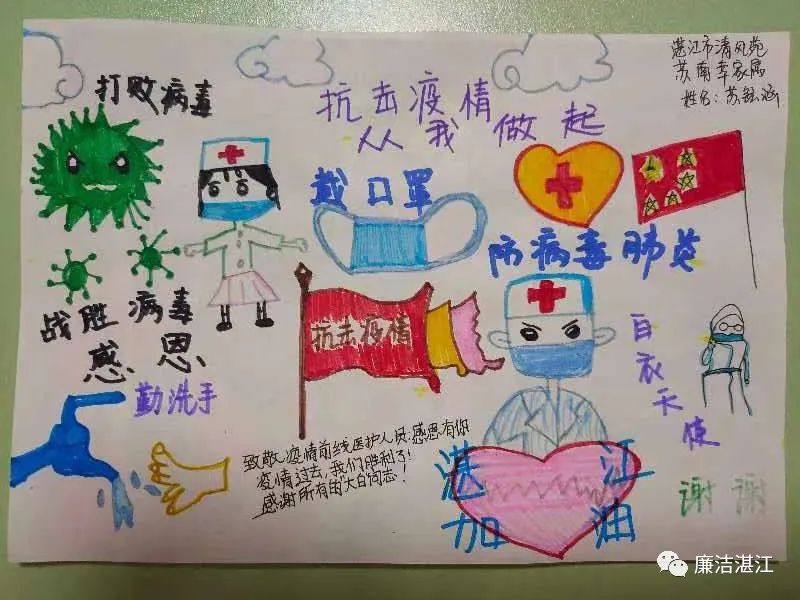 湛江市清风苑
苏南幸家属
姓名：苏钰涵
打败病毒
抗击疫情
从我做起
戴口罩
防病毒肺炎
战胜病毒
感恩
抗击疫情
白衣天使
勤洗手
致敬疫情前线医护人员:感恩有你
疫情过去,我们胜利了!
感谢所有的大白同志!
湛江
加油
谢谢
廉洁湛江